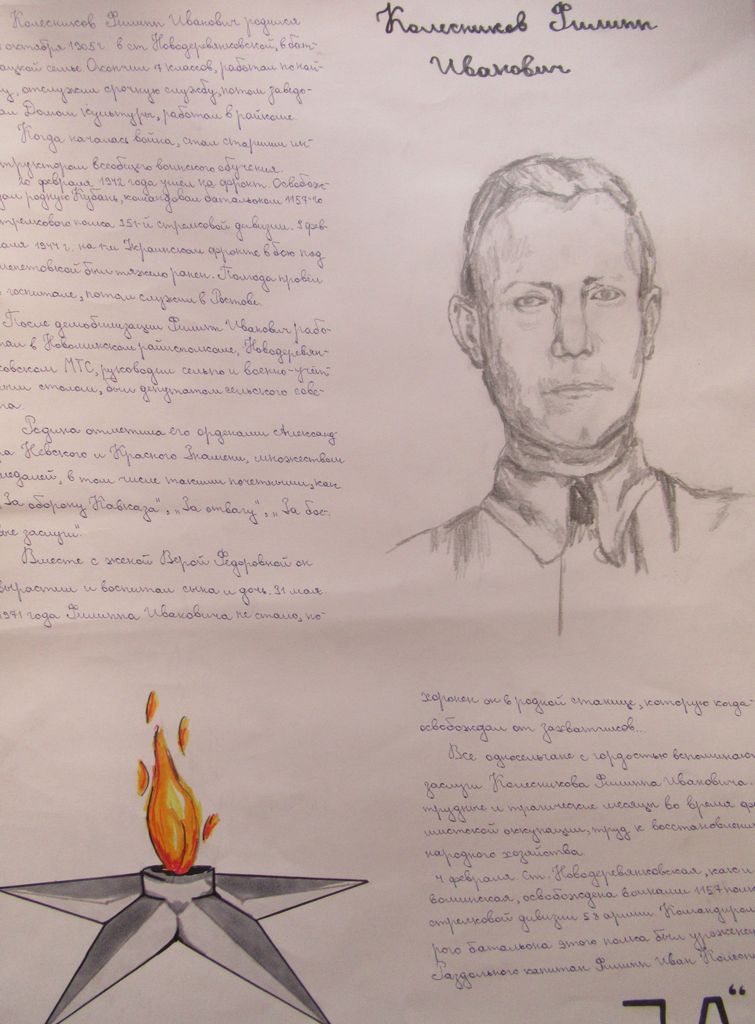 Колесников Филипп
Иванович
Колесников Филипп Иванович родился
октября 1905 г. в ст. Новодеревянковской, в бат-
рацкой семье. Окончил 7 классов, работал по най-
му, отслужил срочную службу, потом заведо-
вал Домом культуры, работал в райкоме.
Когда началась война, стал старшим ин-
структором всеобщего воинского обучения.
20 февраля 1942 года ушел на фронт. Освобож-
дал родную Кубань, командовал батальоном 1157-го
стрелкового полка 351-й стрелковой дивизии. 9 фев-
раля 1944 г. на 1-м Украинском фронте в бою под
Шепетовской был тяжело ранен. Полгода провёл
в госпитале, потом служил в Ростове.
После демобилизации Филипп Иванович рабо-
тал в Новоминском райисполкоме, Новодеревян-
ковском МТС, руководил сельпо и военно-учёт-
ным столом, был депутатом сельского сове-
та.
Родина отметила его орденами Александ-
ра Невского и Красного Знамени, множеством
медалей, в том числе такими почетными, как
„За оборону Кавказа", „За отвагу", „За бое-
вые заслуги".
Вместе с женой Верой Федоровной он
вырастил и воспитал сына и дочь. 31 мая
1971 года Филиппа Ивановича не стало, по-
хоронен он в родной станице, которую когда-
освобождал от захватчиков...
Все односельчане с гордостью вспоминают
заслуги Колесникова Филиппа Ивановича.
трудные и трагические месяцы во время фа
шистской оккупации, труд к восстановлени
народного хозяйства.
4 февраля ст. Новодеревянковская, как и
воминская, освобождена воинами 1157 пол
стрелковой дивизии 58 армии. Командиром
рого батальона этого полка был урожене
Раздольного капитан Филипп Иван Колесн